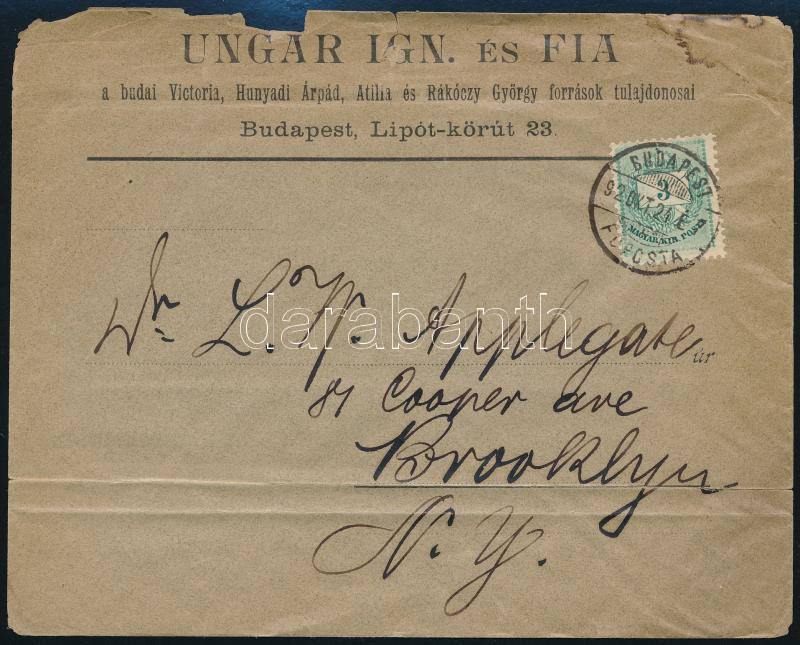 UNGÁR IGN. ÉS FIA
a budai Victoria, Hunyadi Árpád, Atilla és Rákóczy György források tulajdonosai
Budapest, Lipót-körút 23.
BUDAPEST
92 OKT. 21 E
FŐPOSTA
3
MAGYAR KIR. POSTA
darabanth
Dr. L. W. Applegate úr
81 Cooper ave
Brooklyn
N. Y.